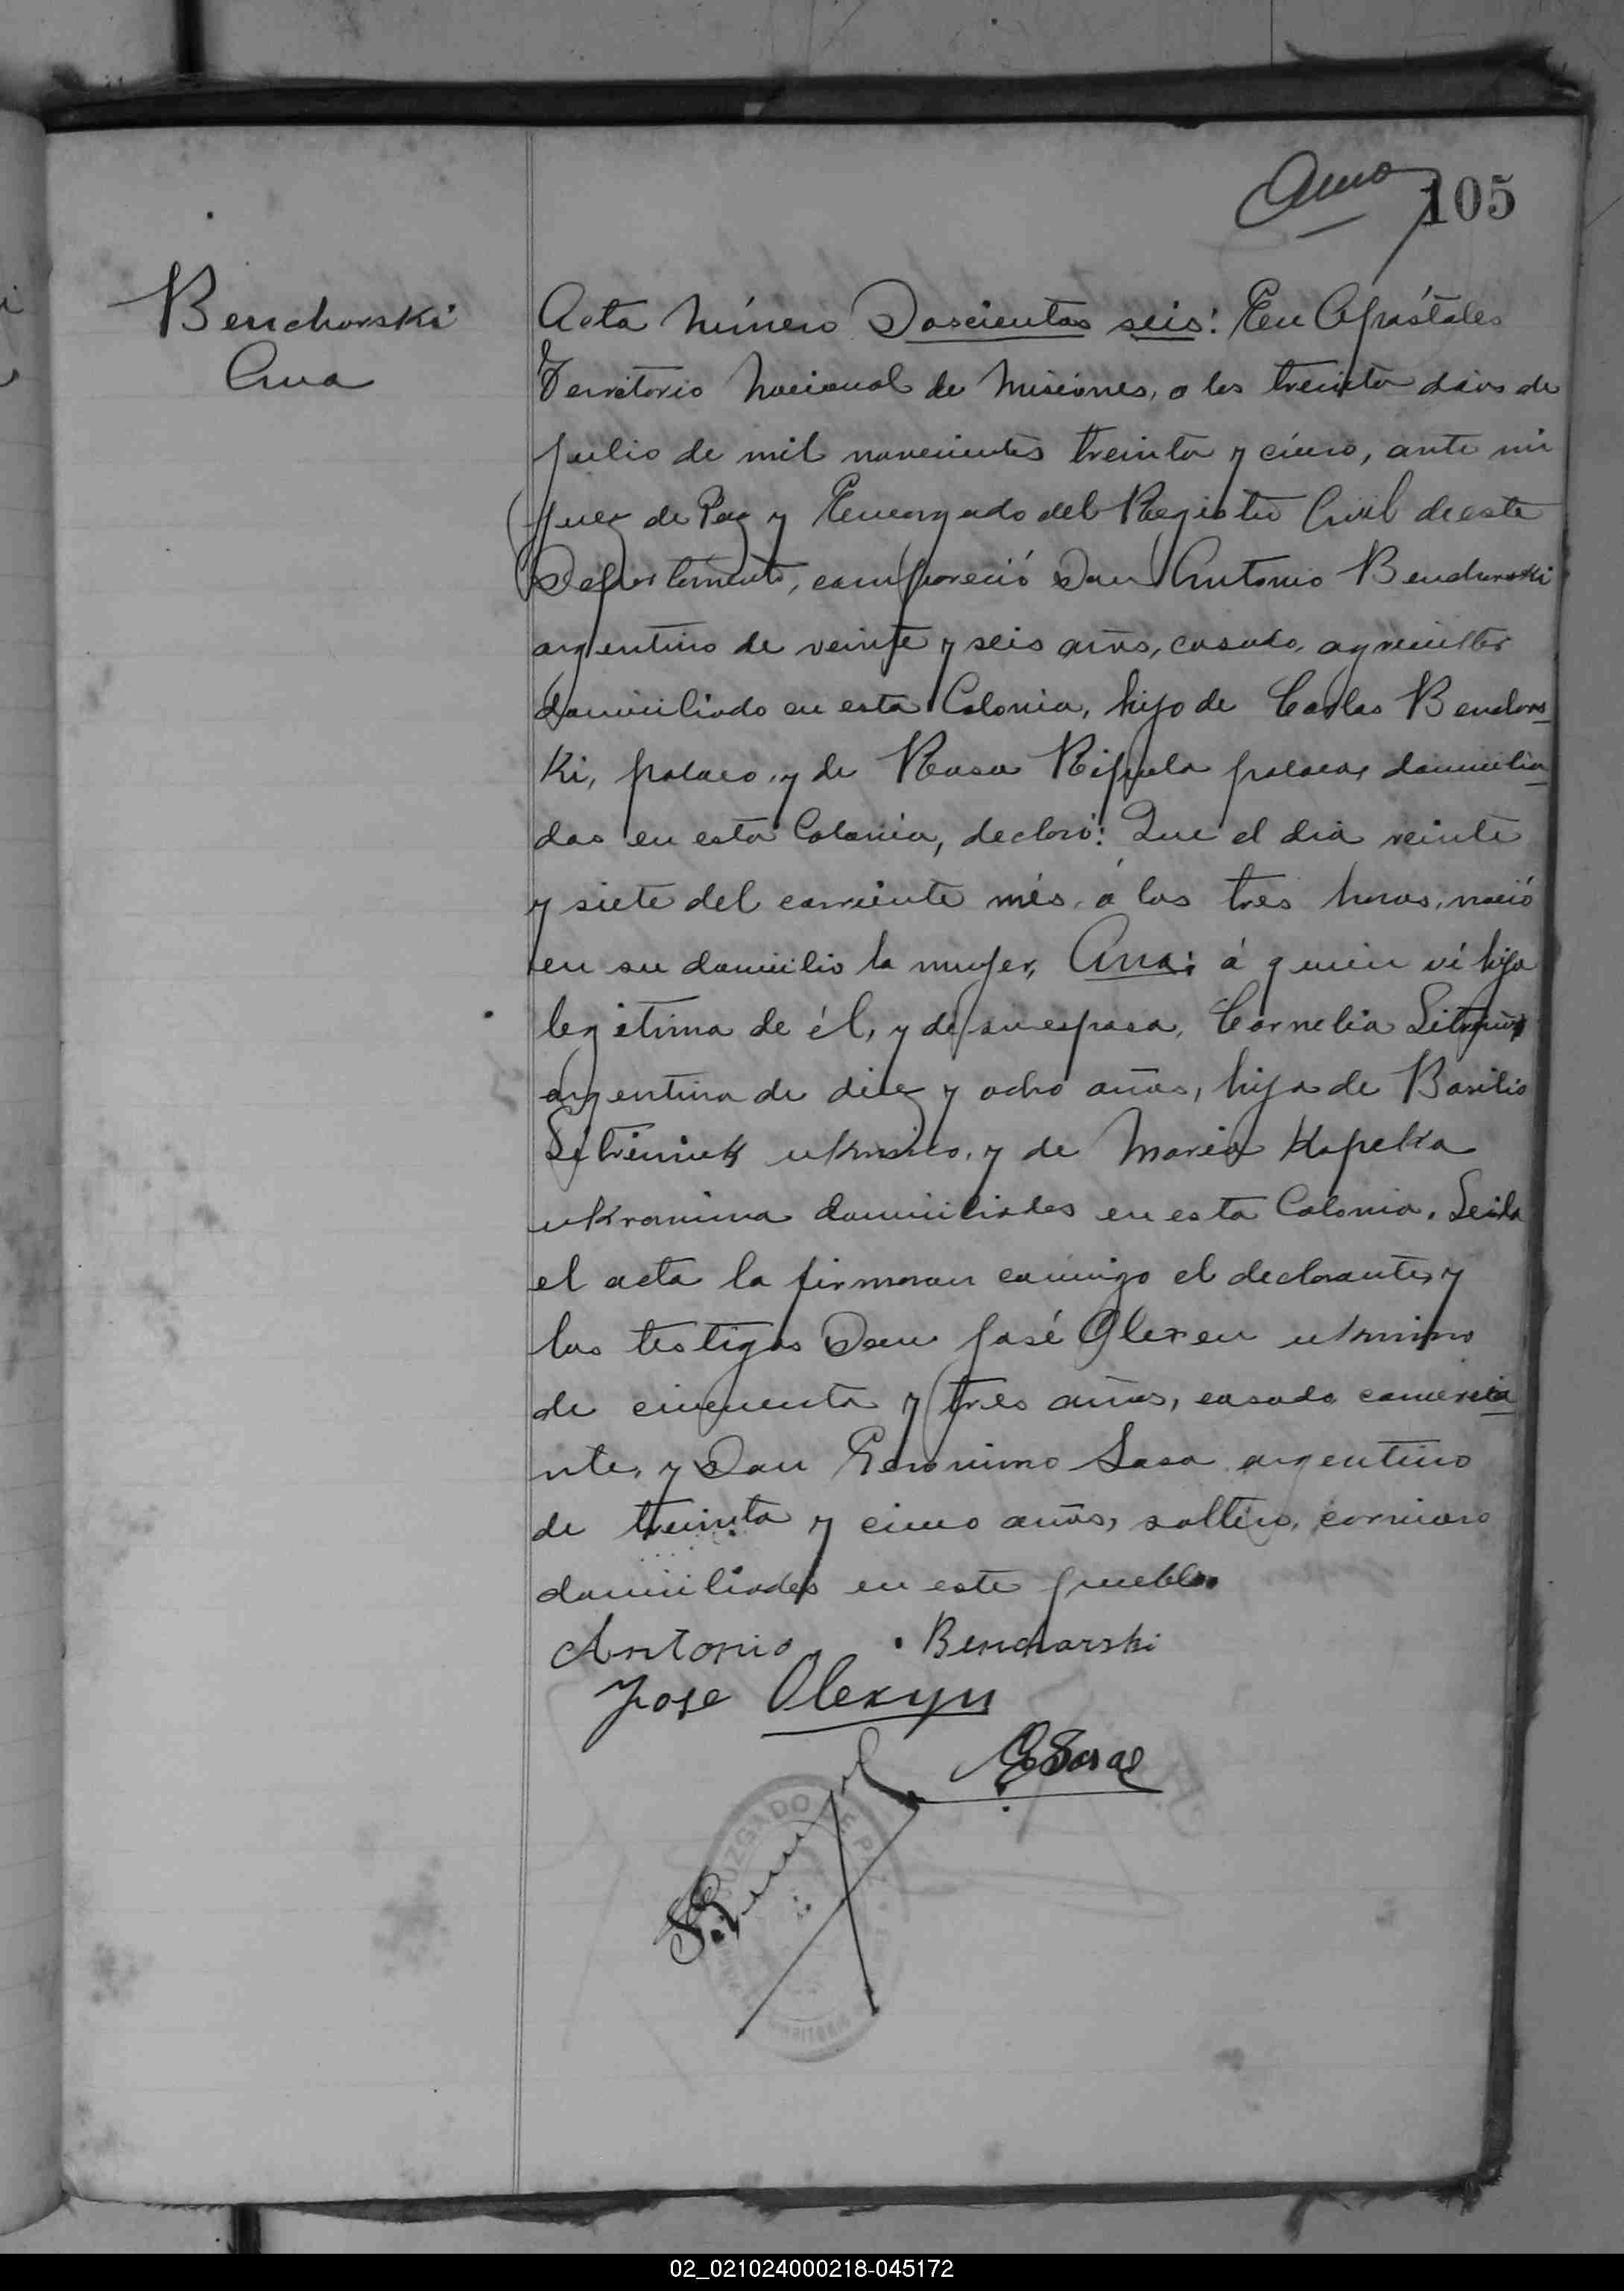 Ana
105
Benchorski
Ana
Acta Número Doscientos seis: En Apóstoles
Territorio Nacional de Misiones, a los treinta dias de
Julio de mil novecientos treinta y cinco, ante mi
Juez de Paz y Encargado del Registro Civil de este
Departamento, compareció Don Antonio Benchorski
argentino de veinte y seis años, casado, agricultor
domiciliado en esta Colonia, hijo de Carlos Benchors
ki, polaco, y de Rosa polaca, domicilia
dos en esta Colonia, declaró: Que el dia veinte
y siete del corriente més, á las tres horas, nació
en su domicilio la mujer, Ana: á quien ví hija
legitima de él, y de su esposa, Cornelia
argentina de diez y ocho años, hija de Basilio
ukranio, y de Maria Kapelka
ukranina domiciliados en esta Colonia. Leida
el acta la firmaron conmigo el declarante, y
los testigos Don José Olexen ukranino
de cincuenta y tres años, casado, comercia
nte, y Don Geronimo Sosa argentino
de treinta y cinco años, soltero, carnicero
domiciliados en este pueblo.
Antonio Benchorski
Jose Olexyn
G Sosa
JUZGADO DE PAZ
TERRITORIO
02_021024000218-045172